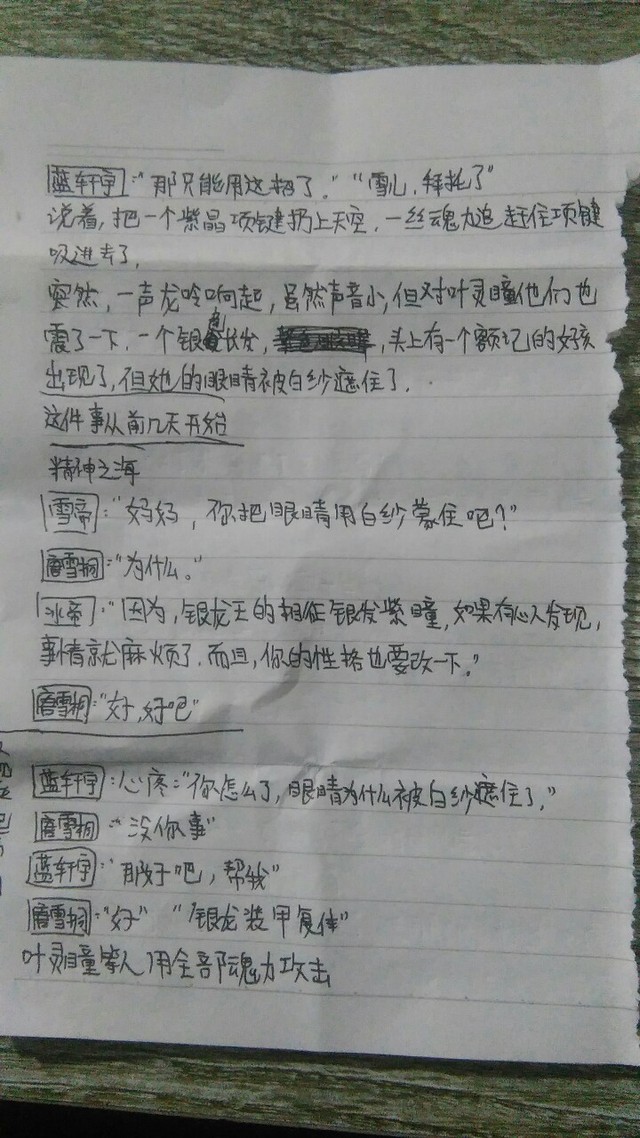 蓝轩宇:“那只能用这招了。”“雪儿,拜托了”
说着,把一个紫晶项链扔上天空,一丝魂力追赶住项链
吸进去了,
突然,一声龙吟响起,虽然声音小,但对叶灵瞳他们也
震了一下,一个银色长发,头上有一个额记的女孩
出现了,但她的眼睛被白纱遮住了.
这件事从前几天开始
精神之海
雪帝:“妈妈,你把眼睛用白纱蒙住吧?”
唐雪桐:“为什么。”
冰帝:“因为,银龙王的相征银发紫瞳,如果有心人发现,
事情就麻烦了.而且,你的性格也要改一下。”
唐雪桐:“好,好吧”
蓝轩宇:心疼:“你怎么了,眼睛为什么被白纱遮住了,”
唐雪桐:“没你事”
蓝轩宇:“那好吧,帮我”
唐雪桐:“好”“银龙装甲复体”
叶灵瞳等人用全部魂力攻击